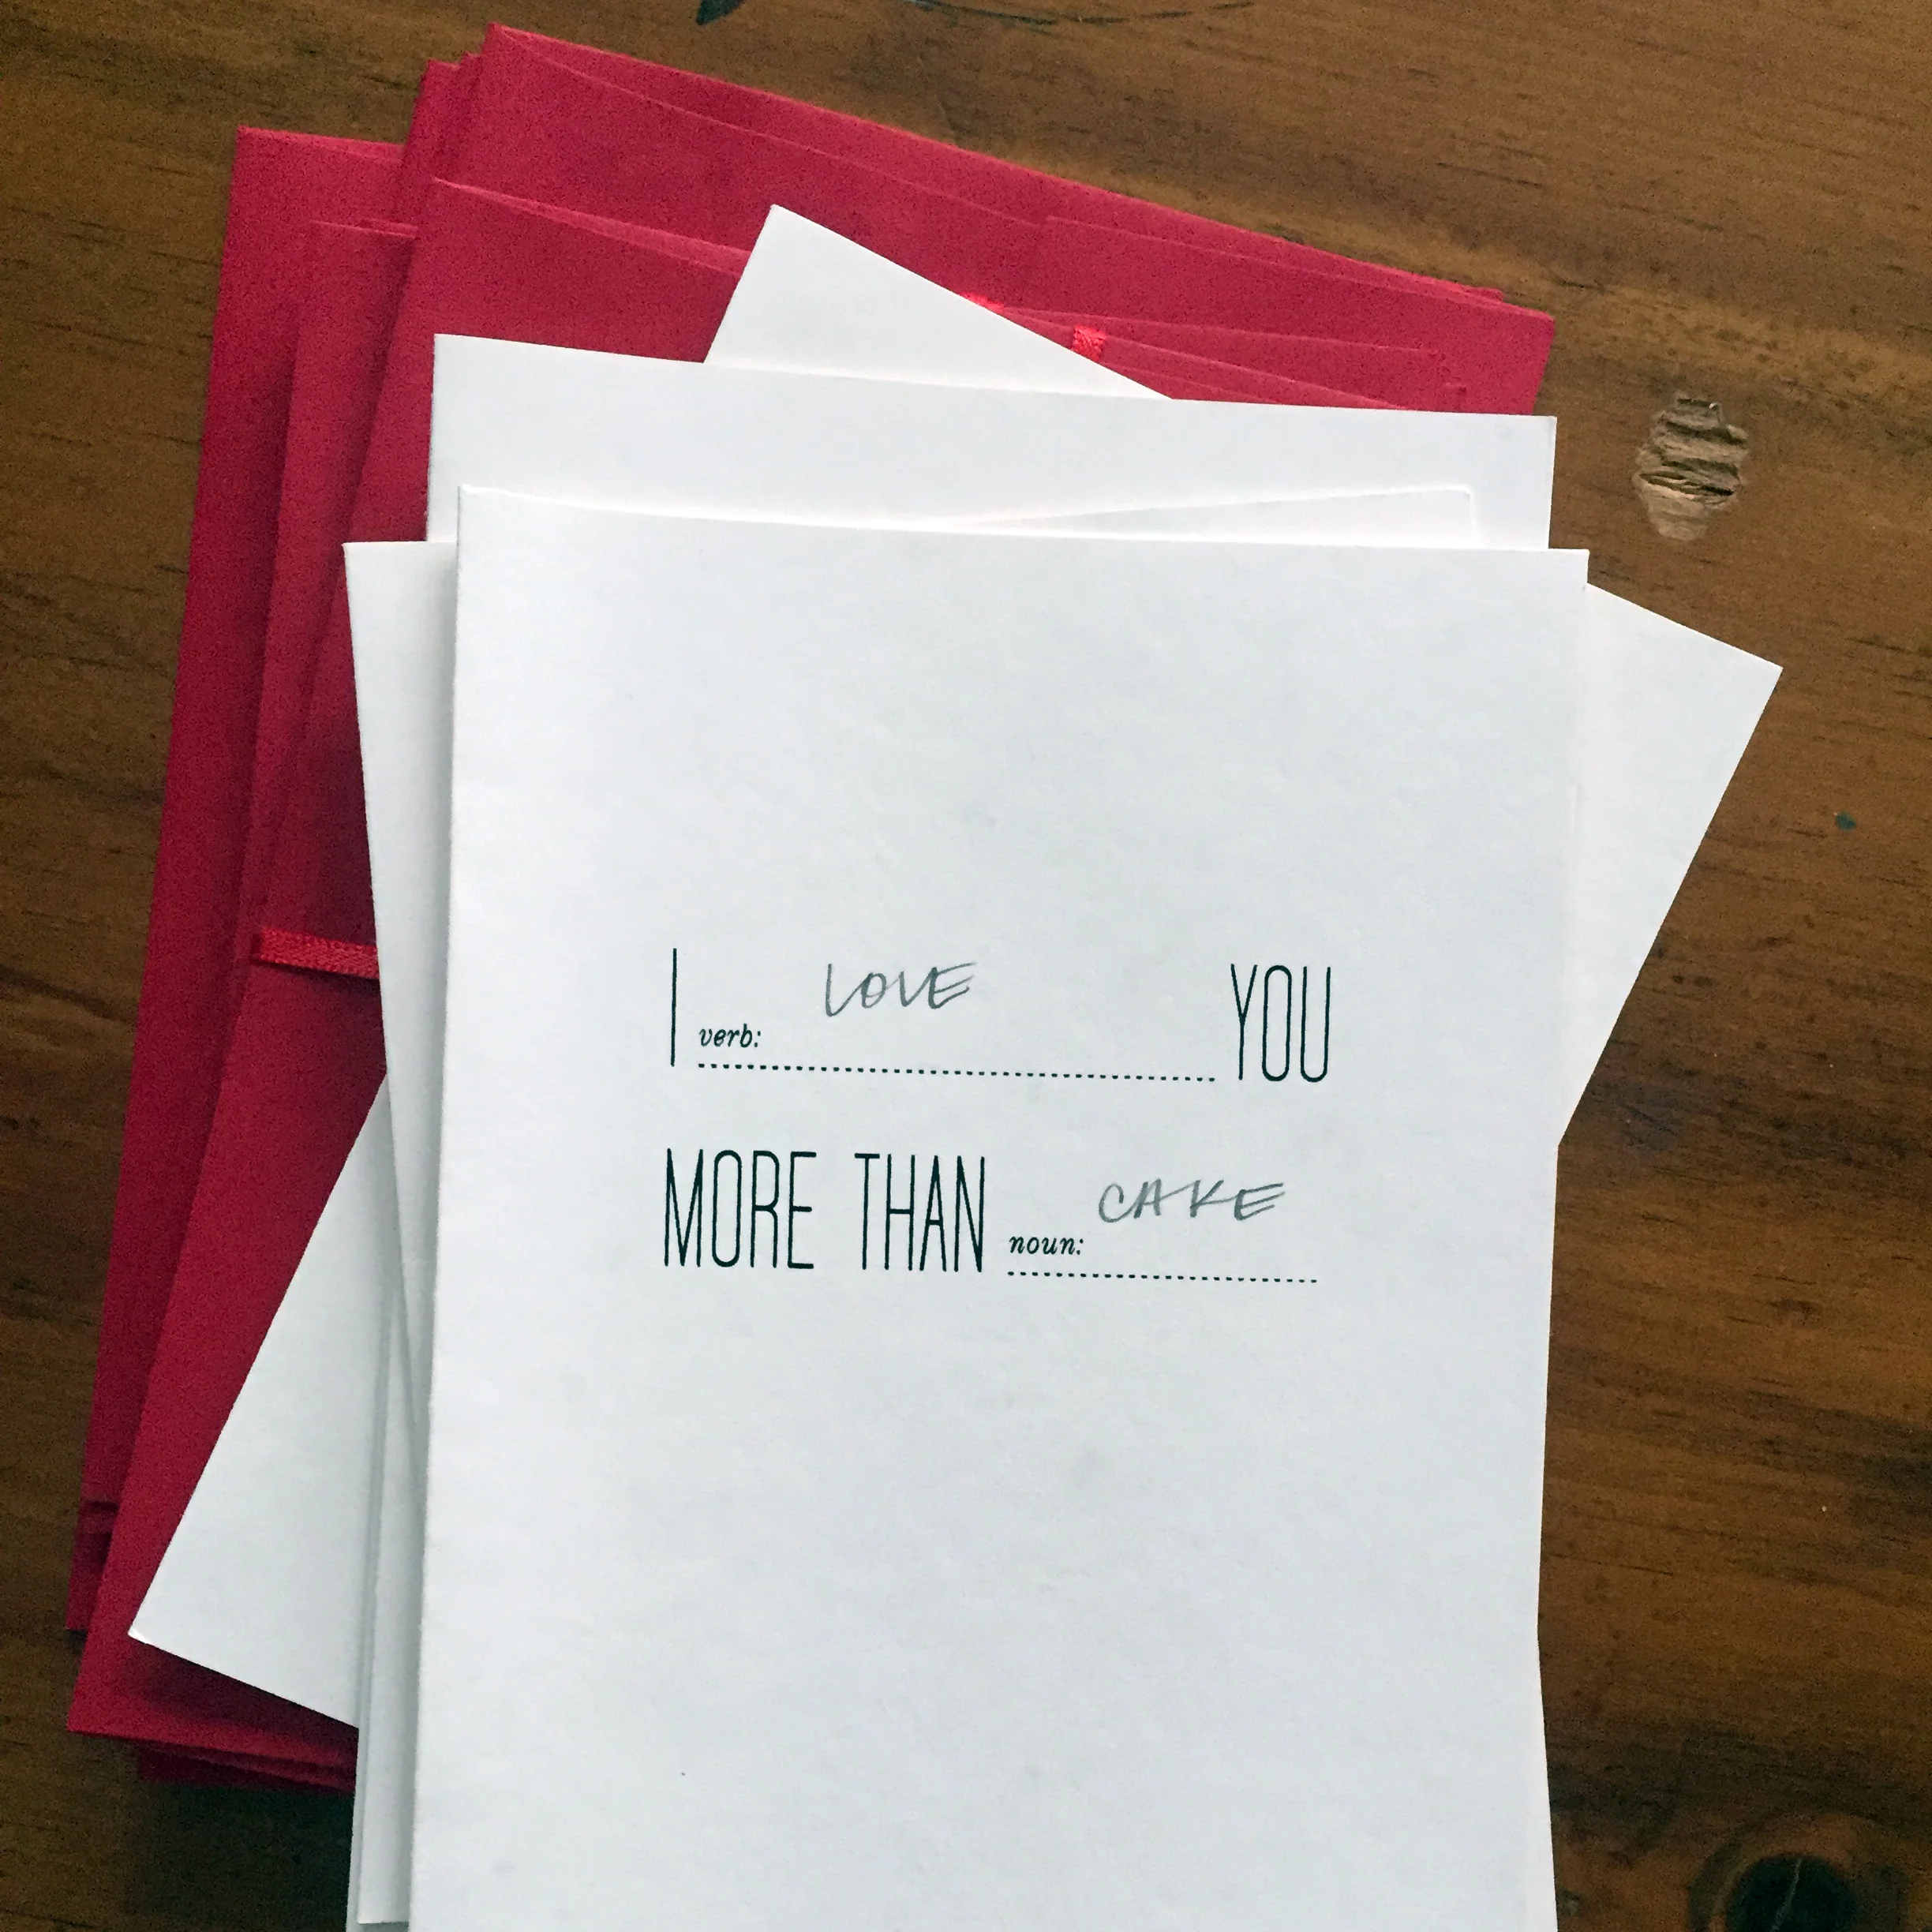 I verb: LOVE YOU
MORE THAN noun: CAKE